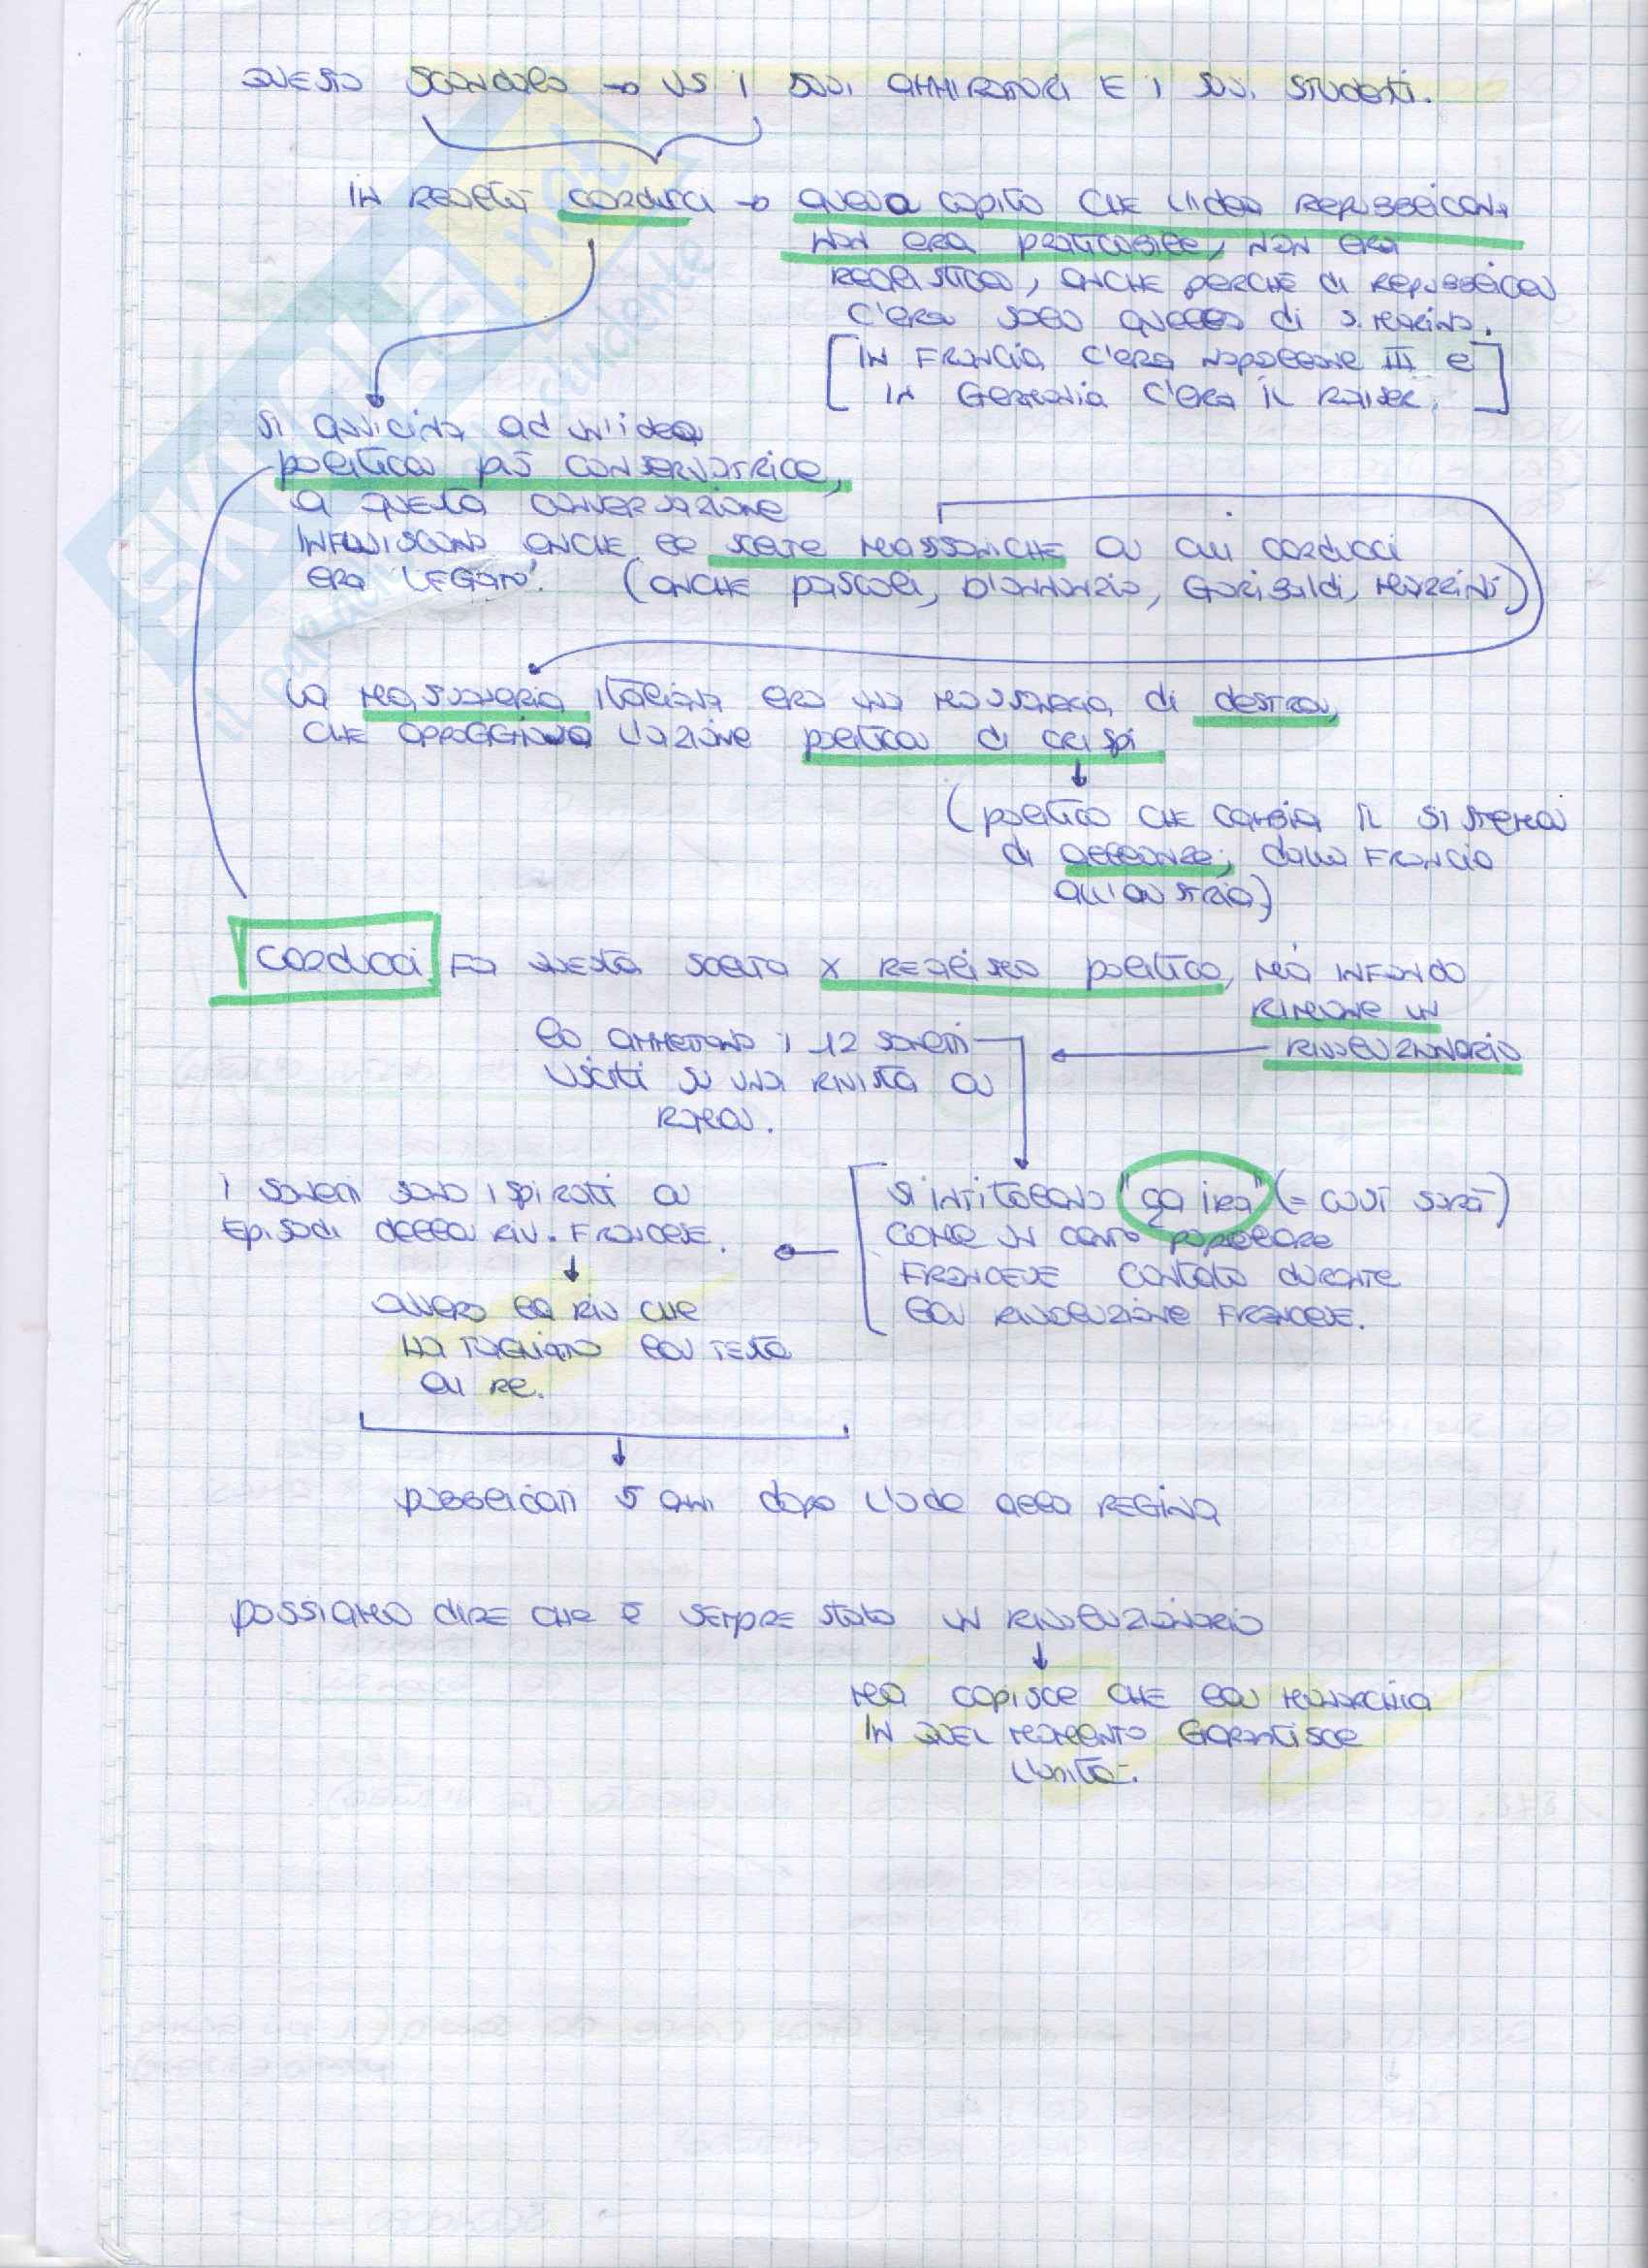 QUESTO SCANDALO → VS I SUOI AMMIRATORI E I SUOI STUDENTI.
IN REALTÀ CARDUCCI → AVEVA CAPITO CHE L'IDEA REPUBBLICANA
NON ERA PRATICABILE, NON ERA
REALISTICA, ANCHE PERCHÉ DI REPUBBLICA
C'ERA SOLO QUELLA DI S. MARINO.
[IN FRANCIA C'ERA NAPOLEONE III E
IN GERMANIA C'ERA IL KAISER.]
SI AVVICINA AD UN'IDEA
POLITICA PIÙ CONSERVATRICE,
A QUESTA CONVERSAZIONE
INFLUISCONO ANCHE LE SCELTE MASSONICHE A CUI CARDUCCI
ERA LEGATO. (ANCHE PASCOLI, D'ANNUNZIO, GARIBALDI, MAZZINI)
LA MASSONERIA ITALIANA ERA UNA MASSONERIA DI DESTRA,
CHE APPOGGIAVA L'AZIONE POLITICA DI CRISPI
(POLITICO CHE CAMBIA IL SISTEMA
DI ALLEANZE, DALLA FRANCIA
ALL'AUSTRIA)
CARDUCCI FA QUESTA SCELTA X REALISMO POLITICO, MA INFONDO
RIMANE UN
RIVOLUZIONARIO
LO AMMETTONO I 12 SONETTI
USCITI SU UNA RIVISTA A
ROMA.
SI INTITOLANO "ÇA IRA" (= COSÌ SARÀ)
COME UN CANTO POPOLARE
FRANCESE CANTATO DURANTE
LA RIVOLUZIONE FRANCESE.
I SONETTI SONO ISPIRATI A
EPISODI DELLA RIV. FRANCESE.
OVVERO LA RIV CHE
HA TAGLIATO LA TESTA
AL RE.
PUBBLICATI 5 ANNI DOPO L'ODE ALLA REGINA
POSSIAMO DIRE CHE È SEMPRE STATO UN RIVOLUZIONARIO
MA CAPISCE CHE LA MONARCHIA
IN QUEL MOMENTO GARANTISCE
L'UNITÀ.
SKUOLA.net